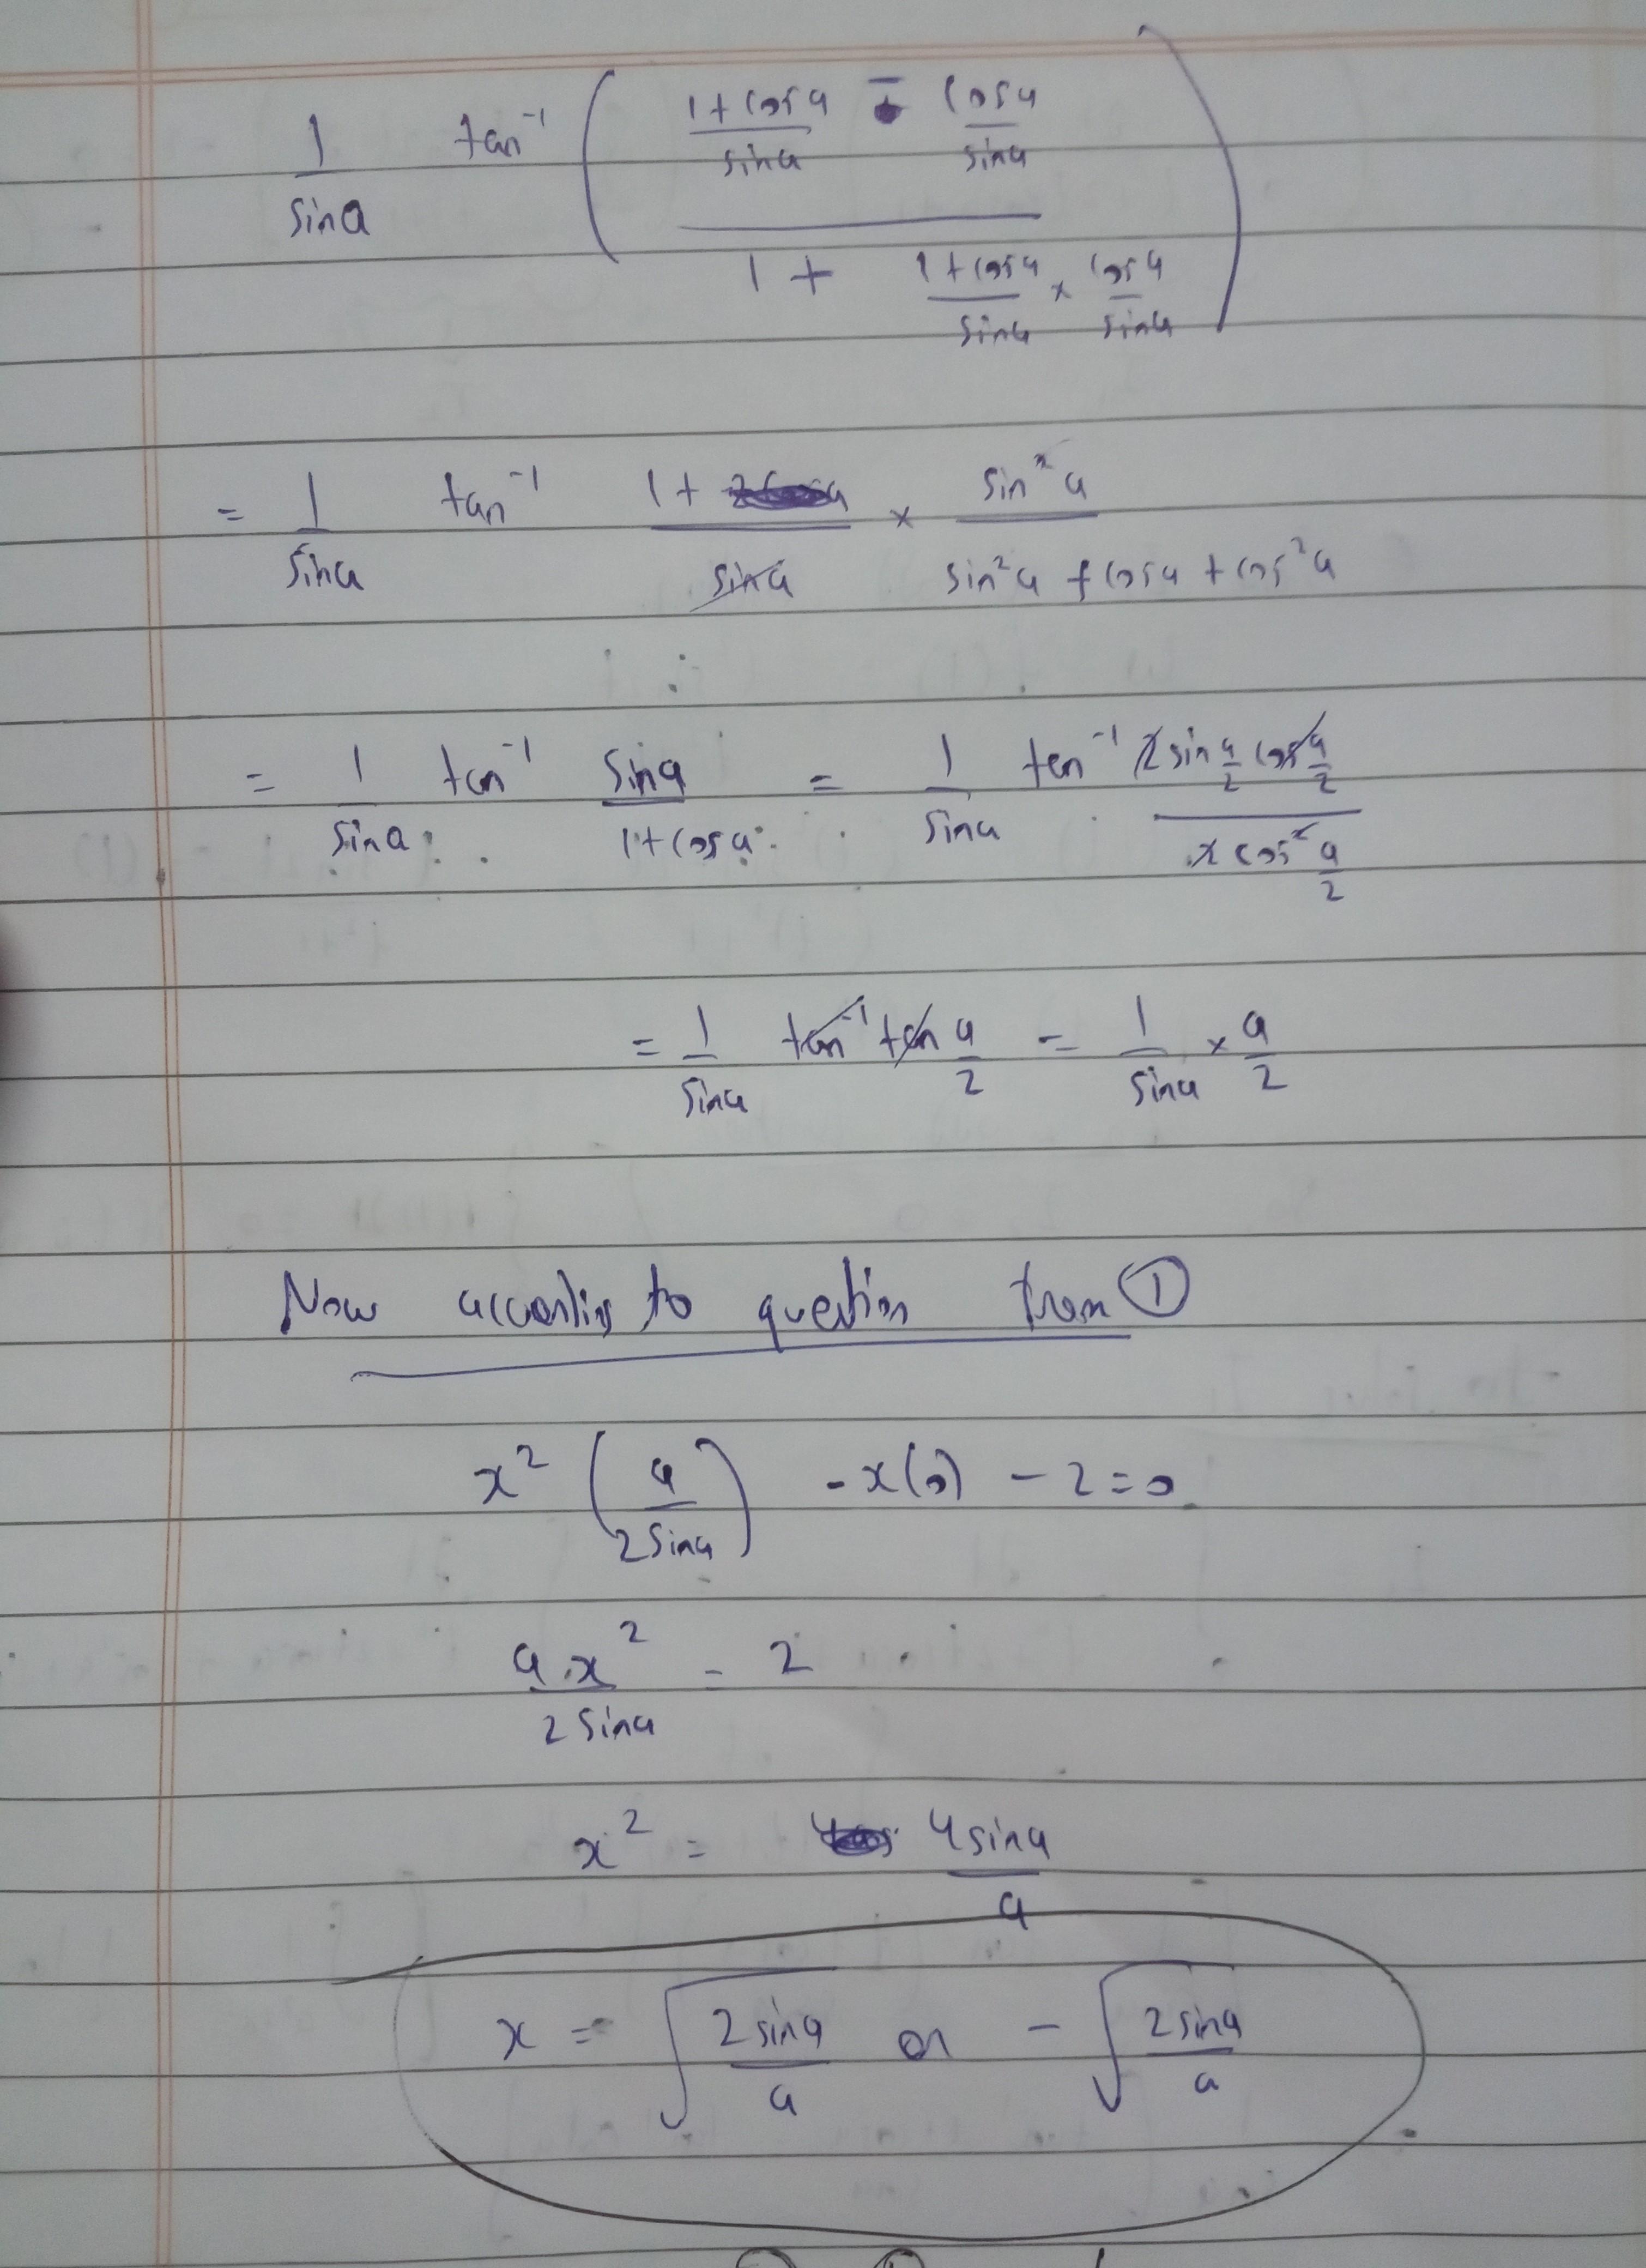 1/sina tan⁻¹ ( ((1+cosa)/sina - cosa/sina) / (1 + (1+cosa)/sina × cosa/sina) )
= 1/sina tan⁻¹ 1+/sina × sin²a/(sin²a + cosa + cos²a)
= 1/sina tan⁻¹ sina/(1+cosa) = 1/sina tan⁻¹ (2 sin a/2 cos a/2)/(2 cos² a/2)
= 1/sina tan⁻¹ tan a/2 = 1/sina × a/2
Now according to question from ①
x² (a/2sina) - x(0) - 2 = 0
a.x²/2sina = 2
x² = 4sina/a
x = √(2sina/a) or - √(2sina/a)